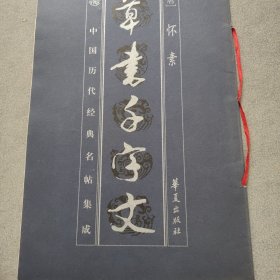 怀素
草書千字文
中国历代经典名帖集成
華夏出版社